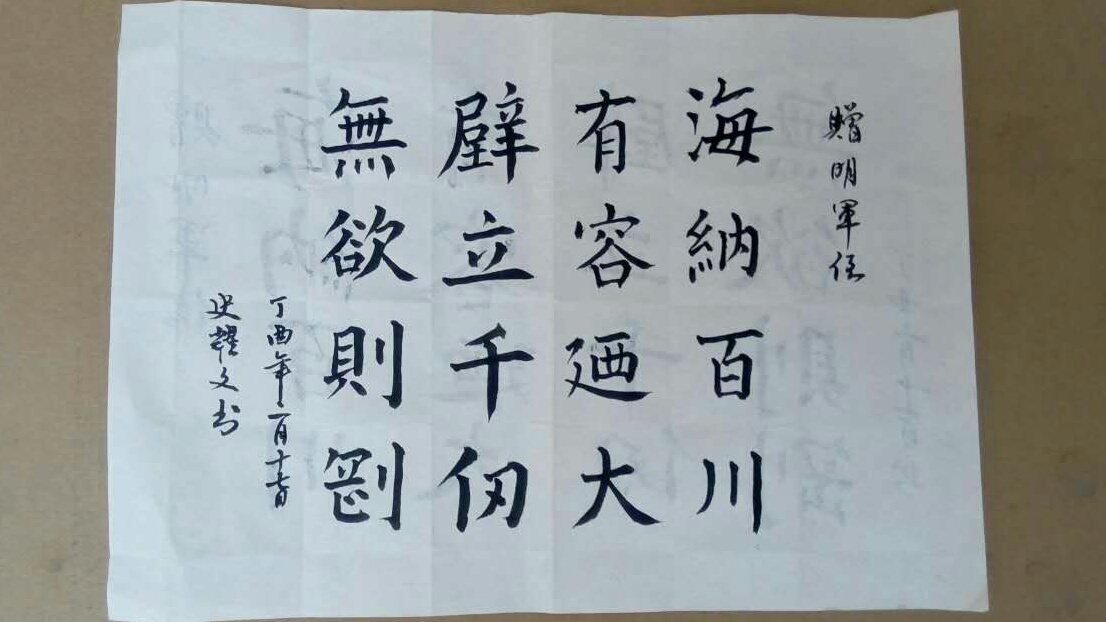 贈明軍侄
海納百川
有容廼大
壁立千仞
無欲則剛
丁酉年二月十
史耀文书